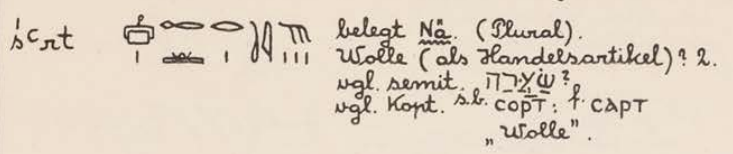 śꜥrt belegt Nä. (Plural).
Wolle (als Handelsartikel)? 2.
vgl. semit. שַׂעֲרָה?
vgl. Kopt. s.b. ⲥⲟⲣⲧ : f. ⲥⲁⲣⲧ
„Wolle".